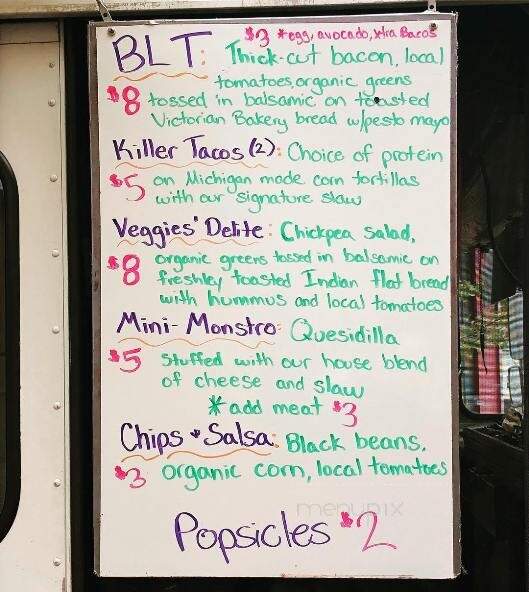 $3 *egg, avocado, xtra Bacos
BLT: Thick-cut bacon, local
tomatoes, organic greens
$8 tossed in balsamic on toasted
Victorian Bakery bread w/pesto mayo
Killer Tacos (2): Choice of protein
$5 on Michigan made corn tortillas
with our signature slaw
Veggies' Delite: Chickpea salad,
$8 organic greens tossed in balsamic on
freshley toasted Indian flat bread
with hummus and local tomatoes
Mini-Monstro: Quesidilla
$5 Stuffed with our house blend
of cheese and slaw
*add meat $3
Chips + Salsa: Black beans,
$3 organic corn, local tomatoes
menupix
Popsicles $2